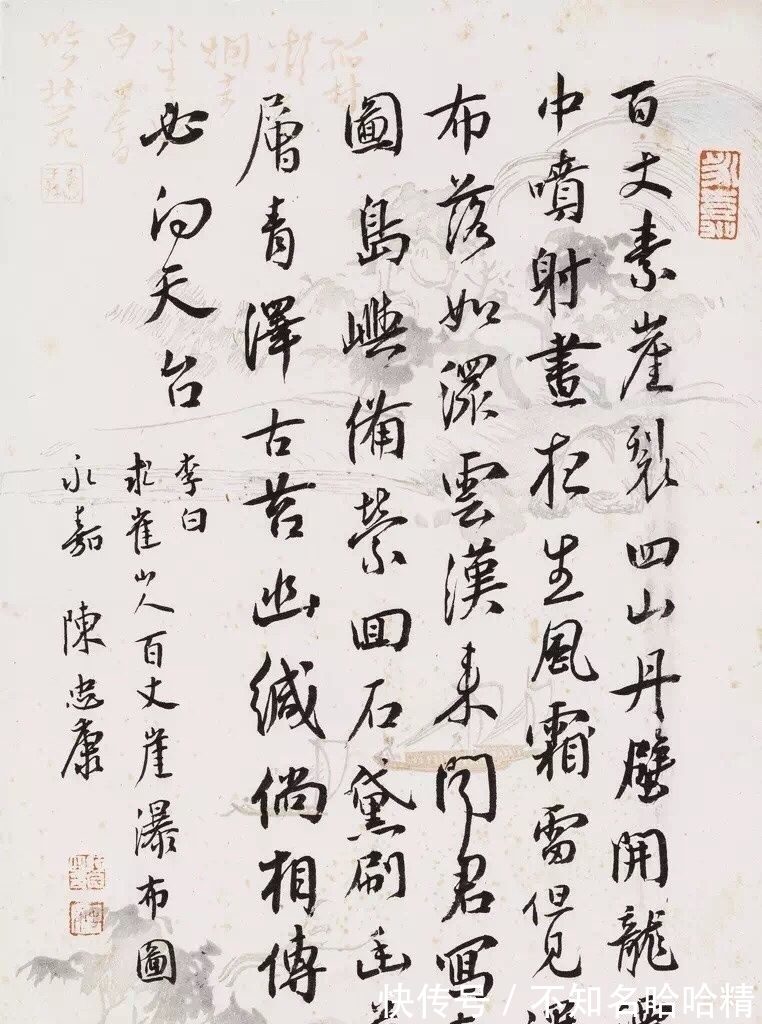 百丈素崖裂四山丹壁開龍
中噴射晝夜生風霜雷但見
布落如潀雲漢来聞君寫
圖島嶼備縈回石黛刷幽
層青澤古苔幽緘倘相傳
必向天台
李白
求崔山人百丈崖瀑布圖
永嘉 陳忠康
快传号 / 不知名哈哈精